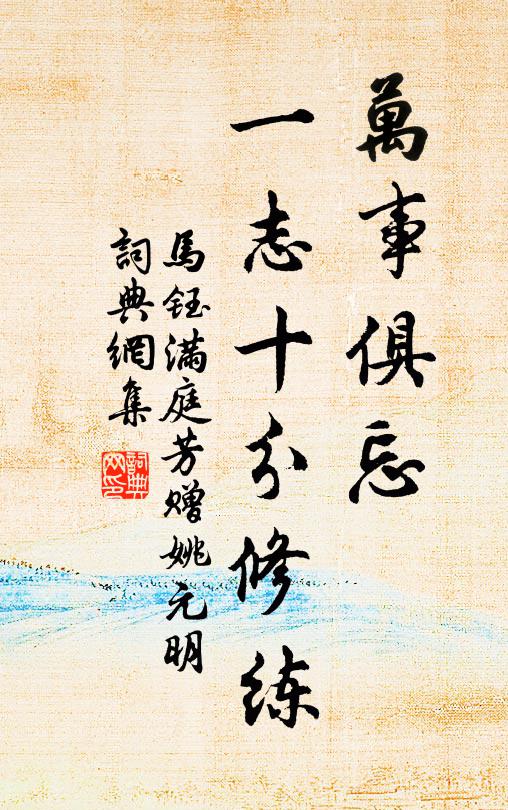 萬事俱忘
一志十分修练
馬鈺满庭芳赠姚元明
詞典網集
詞典网印